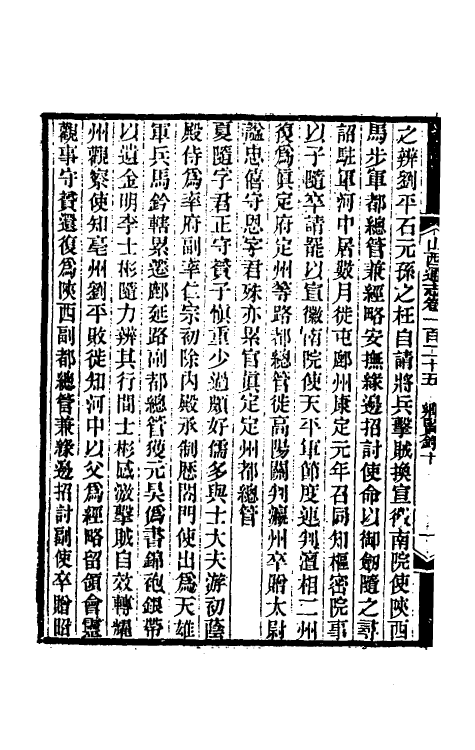 之辨劉平石元孫之枉自請將兵擊賊換宣徽南院使陝西
馬步軍都總管兼經略安撫緣邊招討使命以御劍隨之尋
詔駐軍河中居數月徙屯鄜州康定元年召同知樞密院事
以子隨卒請罷以宣徽南院使天平軍節度連判澶相二州
復爲眞定府定州等路都總管徙高陽關判瀛州卒贈太尉
謚忠僖守恩字君殊亦累官眞定定州都總管
夏隨字君正守贇子愼重少過頗好儒多與士大夫游初蔭
殿侍爲率府副率仁宗初除內殿承制歷閤門使出爲天雄
軍兵馬鈐轄累遷鄜延路副都總管獲元昊僞書錦砲銀帶
以遺金明李士彬隨力辨其行間士彬感激擊賊自效轉耀
州觀察使知亳州劉平敗徙知河中以父爲經略留領會靈
觀事守贇還復爲陝西副都總管兼緣邊招討副使卒贈昭
山西通志卷一百二十五